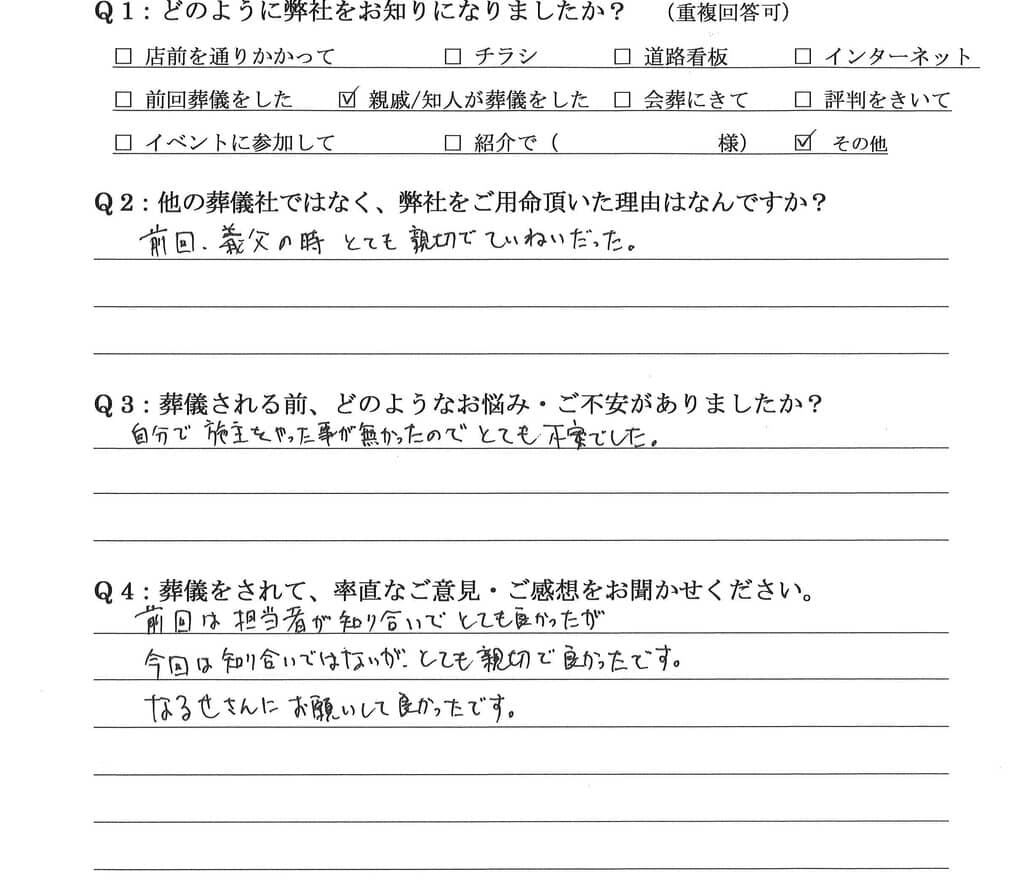 Q1：どのように弊社をお知りになりましたか？　（重複回答可）
□ 店前を通りかかって　□ チラシ　□ 道路看板　□ インターネット
□ 前回葬儀をした　☑ 親戚/知人が葬儀をした　□ 会葬にきて　□ 評判をきいて
□ イベントに参加して　□ 紹介で（　　　　　様）　☑ その他
Q2：他の葬儀社ではなく、弊社をご用命頂いた理由はなんですか？
前回、義父の時 とても 親切で ていねいだった。
Q3：葬儀される前、どのようなお悩み・ご不安がありましたか？
自分で 施主をやった事が無かったので とても 不安でした。
Q4：葬儀をされて、率直なご意見・ご感想をお聞かせください。
前回は 担当者が 知り合いで とても良かったが
今回は 知り合いではないが、とても 親切で 良かったです。
なるせさんに お願いして 良かったです。